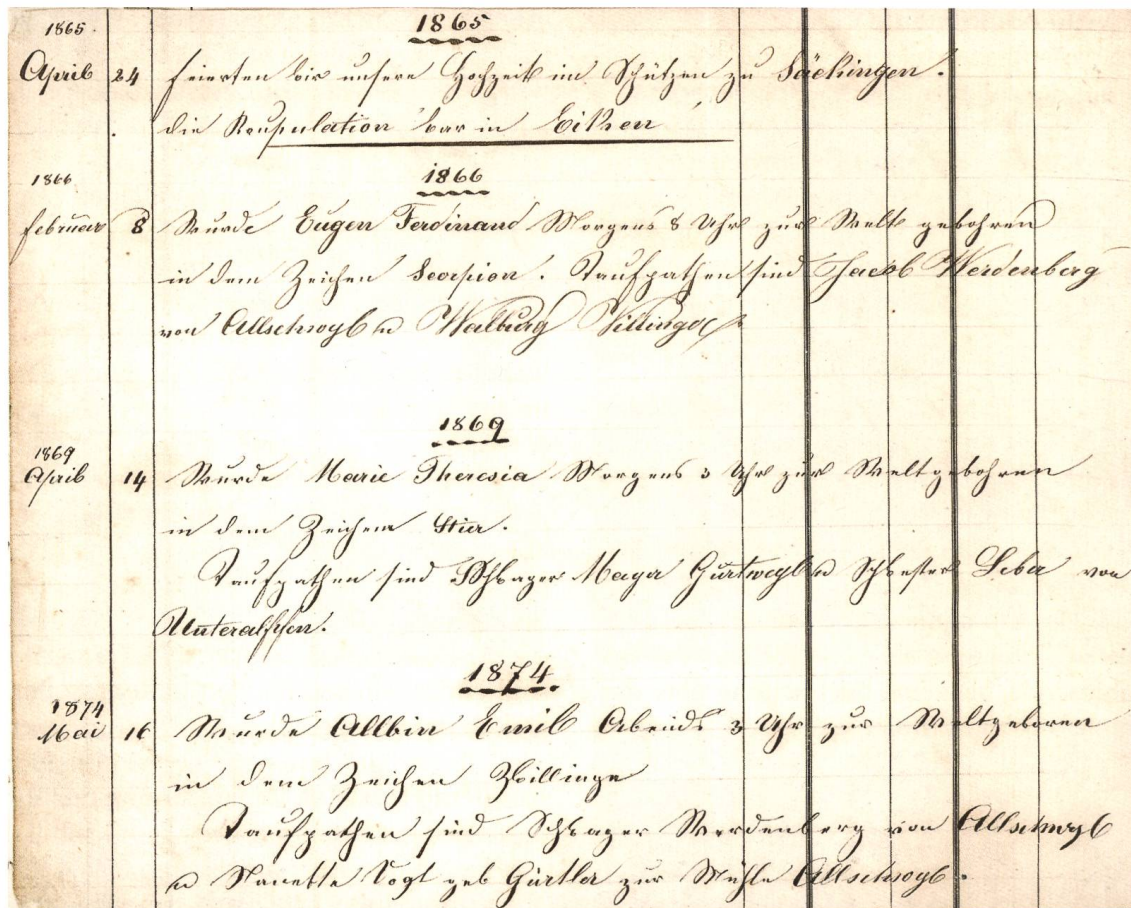 1865
1865
April 24 feierten wir unsere Hochzeit im Schützen zu Säckingen.
die Koupulation war in Eiken
1866
1866
Februar 8 Wurde Eugen Ferdinand Morgens 8 Uhr zur Welt gebohren
in dem Zeichen Scorpion. Taufpathen sind Jacob Werdenberg
von Allschwyl u Walburg Villinger
1869
1869
April 14 Wurde Marie Theresia Morgens 3 Uhr zur Welt gebohren
in dem Zeichen Stier.
Taufpathen sind Schwager Mayer Gurtweyl u Schwester Leber von
Unteralpfen.
1874
1874
Mai 16 Wurde Allbin Emil Abends 3 Uhr zur Welt geboren
in dem Zeichen Zwillinge
Taufpathen sind Schwager Werdenberg von Allschwyl
u Nanette Vogt geb Gürtler zur Mühle Allschwyl.